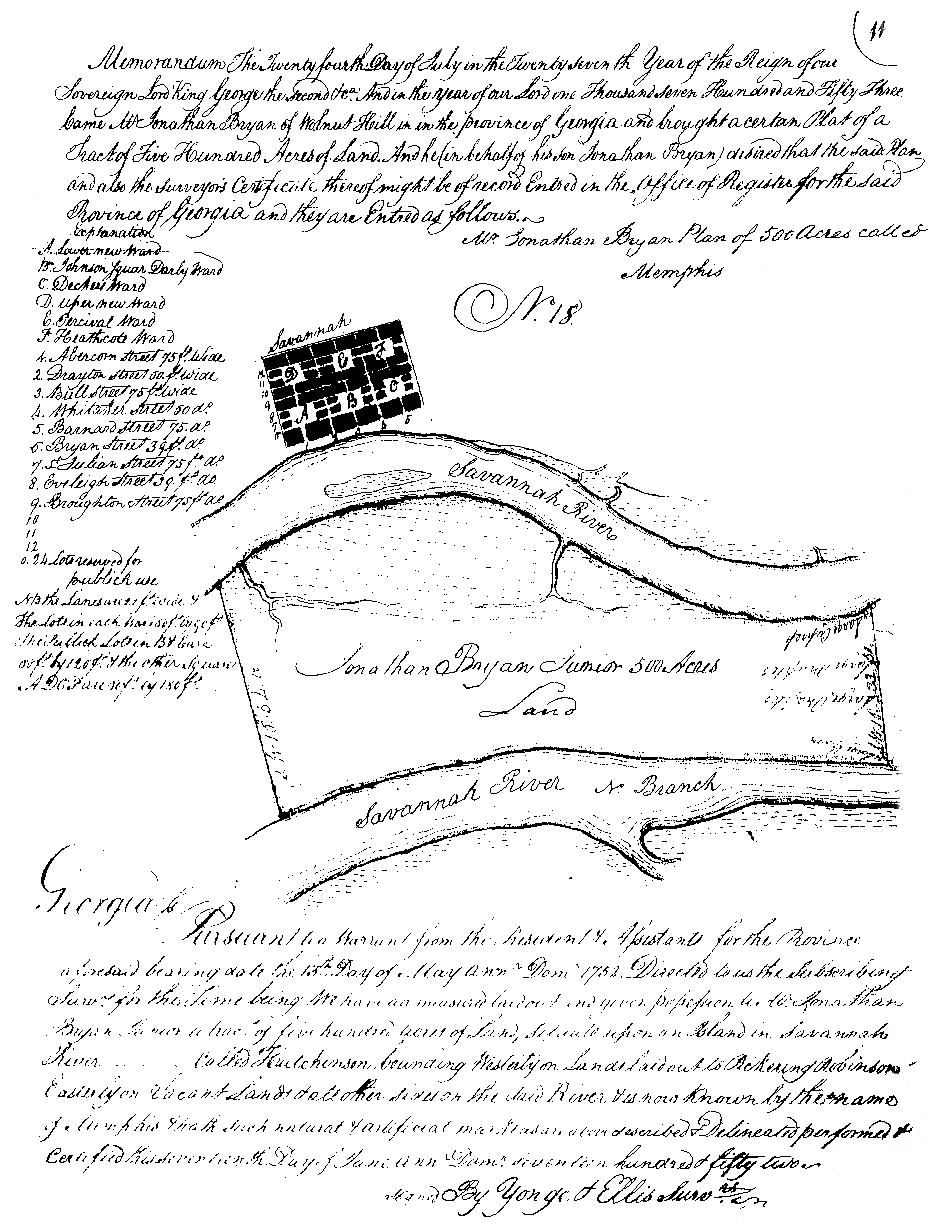 11
Memorandum The Twenty fourth Day of July in the Twenty seventh Year of the Reign of our
Sovereign Lord King George the second &ca. And in the year of our Lord one Thousand seven Hundred and Fifty Three
Came Mr. Jonathan Bryan of Walnut Hill in in the province of Georgia and brought a certan Plat of a
Tract of Five Hundred Acres of Land. And he (in behalf of his son Jonathan Bryan) desired that the said Plan
and also the Surveyor's Certificate thereof might be of record Entred in the Office of Register for the said
Province of Georgia and they are Entred as follows.
Mr. Jonathan Bryan Plan of 500 Acres called
Memphis
No. 18
Explanation
A. Lower new Ward
B. Johnson squar Darby Ward
C. Deckers Ward
D. uper new Ward
E. Percival Ward
F. Heathcote Ward
1. Abercorn Street 75 ft. Wide
2. Drayton Street 50 ft. wide
3. Bull Street 75 ft. wide
4. Whitaker Street 50 do.
5. Barnard Street 75. do.
6. Bryan Street 39 ft. do.
7. St. Julian Street 75 ft. do.
8. Eveleigh Street 39 ft. do.
9. Broughton Street 75 ft do.
10
11
12
o. 24 Lots reserved for
publick use
NB the Lanes are ft. wide &
the Lots in each
the Publick Lots in B & C are
60 ft. by 120 ft. & the other Squares
A D C F are ft. by 180 ft.
Savannah
D E F
A B C
Savannah River
Jonathan Bryan Junior 500 Acres
Land
Savannah River No. Branch
Georgia Ss.
Pursuant to a Warrant from the President & Assistants for the Province
aforesaid bearing date the 15th. Day of May Anno. Domi. 1752. Directed to us the Subscribing
Survrs. for the time being We have admeasured laid out and given possession to Mr. Jonathan
Bryan Junior a tract of five hundred Acres of Land, situate upon an Island in Savannah
River called Hutchinson, bounding Westerly on Lands laid out to Pickering Robinson
Easterly on Vacant Lands & all other sides on the said River & is now known by the name
of Memphis & hath such natural & artificial marks as are above described & Delineated performed &
Certified this seventeenth Day of June Anno Domi. seventeen hundred & fifty two
Signed By Yonge & Ellis Survrs.